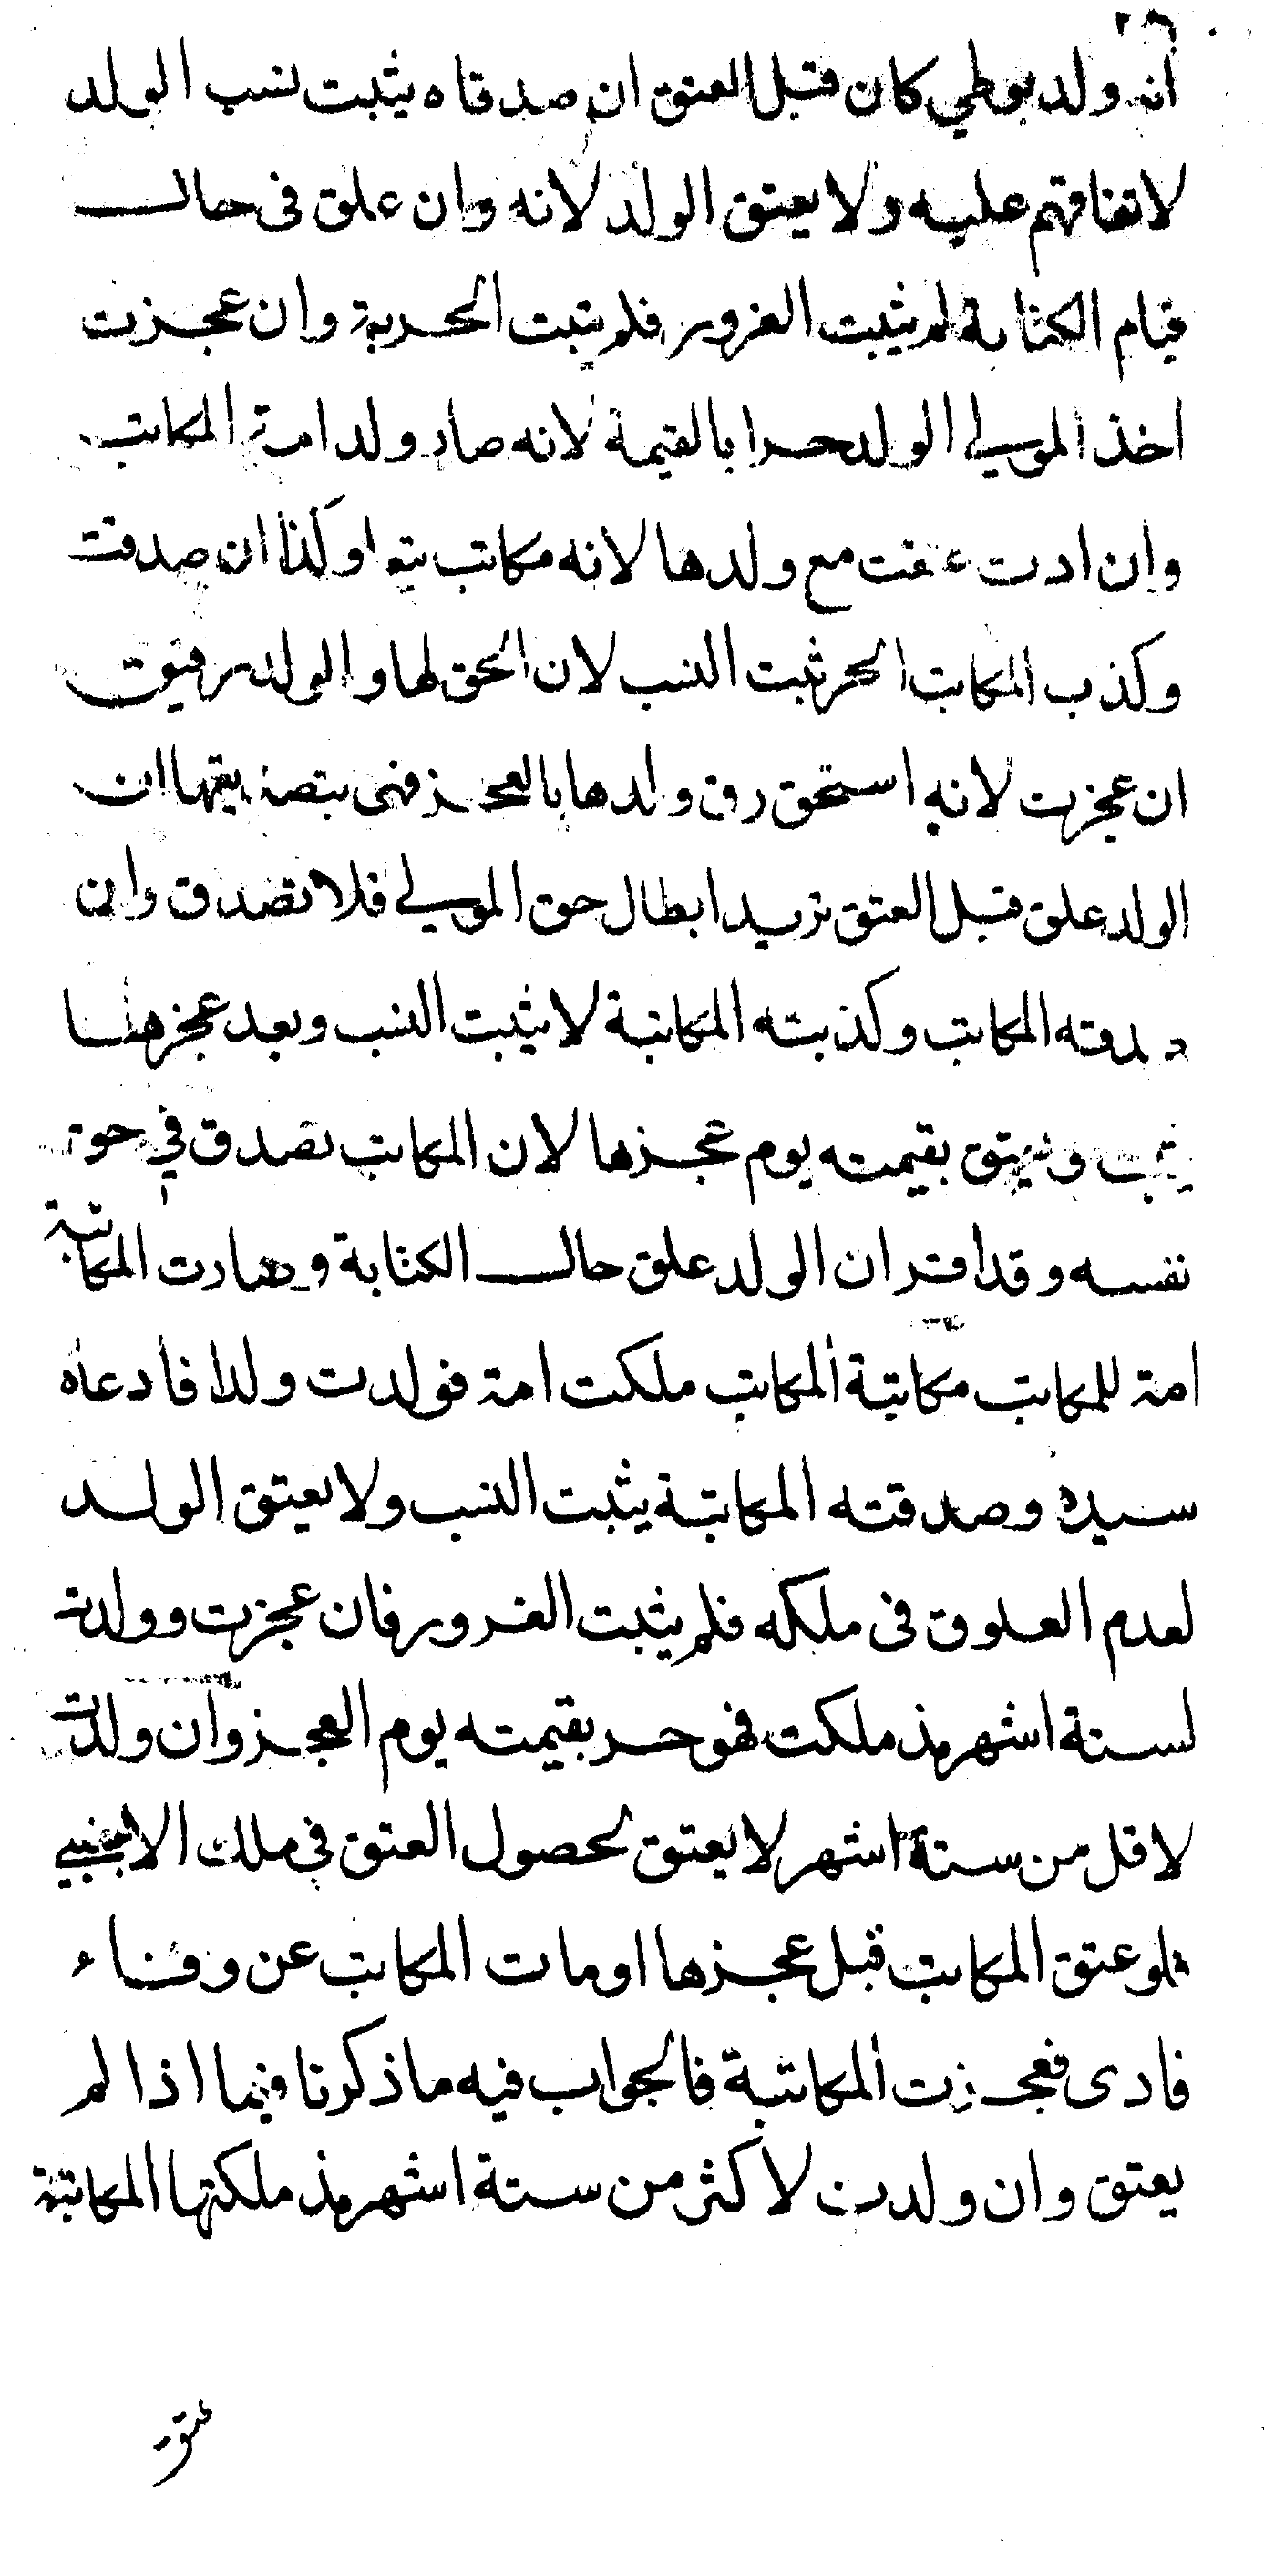 انه ولد بوطي كان قبل العتق ان صدقاه يثبت نسب الولد
لاتفاقهم عليه ولا يعتق الولد لانه وان علق فى حال
قيام الكتابة لم يثبت الغرور فلم يثبت الحرية وان عجزت
اخذ المولى الولد حرا بالقيمة لانه صار ولد امة المكاتب
وان ادت عتقت مع ولدها لانه مكاتب تبعا وكذا ان صدقت
وكذب المكاتب الحر ثبت النسب لان الحق لها والولد رقيق
ان عجزت لانه استحق رق ولدها بالعجز فهى بتصديقها ان
الولد علق قبل العتق تريد ابطال حق المولى فلا تصدق وان
صدقه المكاتب وكذبته المكاتبة لا يثبت النسب وبعد عجزها
يثبت ويعتق بقيمته يوم عجزها لان المكاتب تصدق في حق
نفسه وقد اقر ان الولد علق حال الكتابة وصارت المكاتبة
امة للمكاتب مكاتبة المكاتب ملكت امة فولدت ولدا فادعاه
سيده وصدقته المكاتبة يثبت النسب ولا يعتق الولد
لعدم العلوق فى ملكه فلم يثبت الغرور فان عجزت وولدت
لستة اشهر مذ ملكت فهو حر بقيمته يوم العجز وان ولدت
لاقل من ستة اشهر لا يعتق لحصول العتق في ملك الاجنبي
فلو عتق المكاتب قبل عجزها او مات المكاتب عن وفاء
فادى فعجزت المكاتبة فالجواب فيه ما ذكرنا فيما اذا لم
يعتق وان ولدت لاكثر من ستة اشهر مذ ملكتها المكاتبة